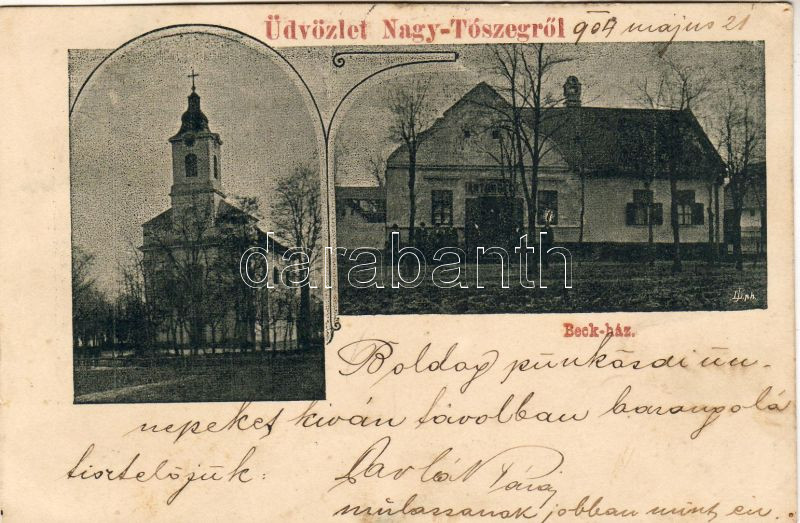 Üdvözlet Nagy-Tószegről 904 május 21
ANTON BECK
darabanth
Beck-ház.
Boldog pünkösdi ün-
nepeket kiván távolban barangoló
tisztelőjük:
mulassanak jobban mint én.